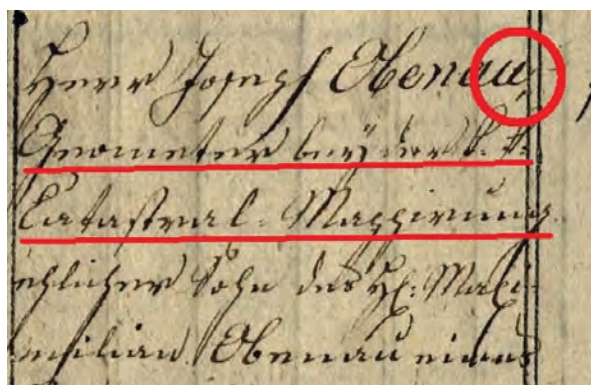 Herr Joseph Obenau,
Geometer bey der k. k.
Catastral-Mappirung
ehlicher Sohn des H: Maxi-
milian Obenau eines